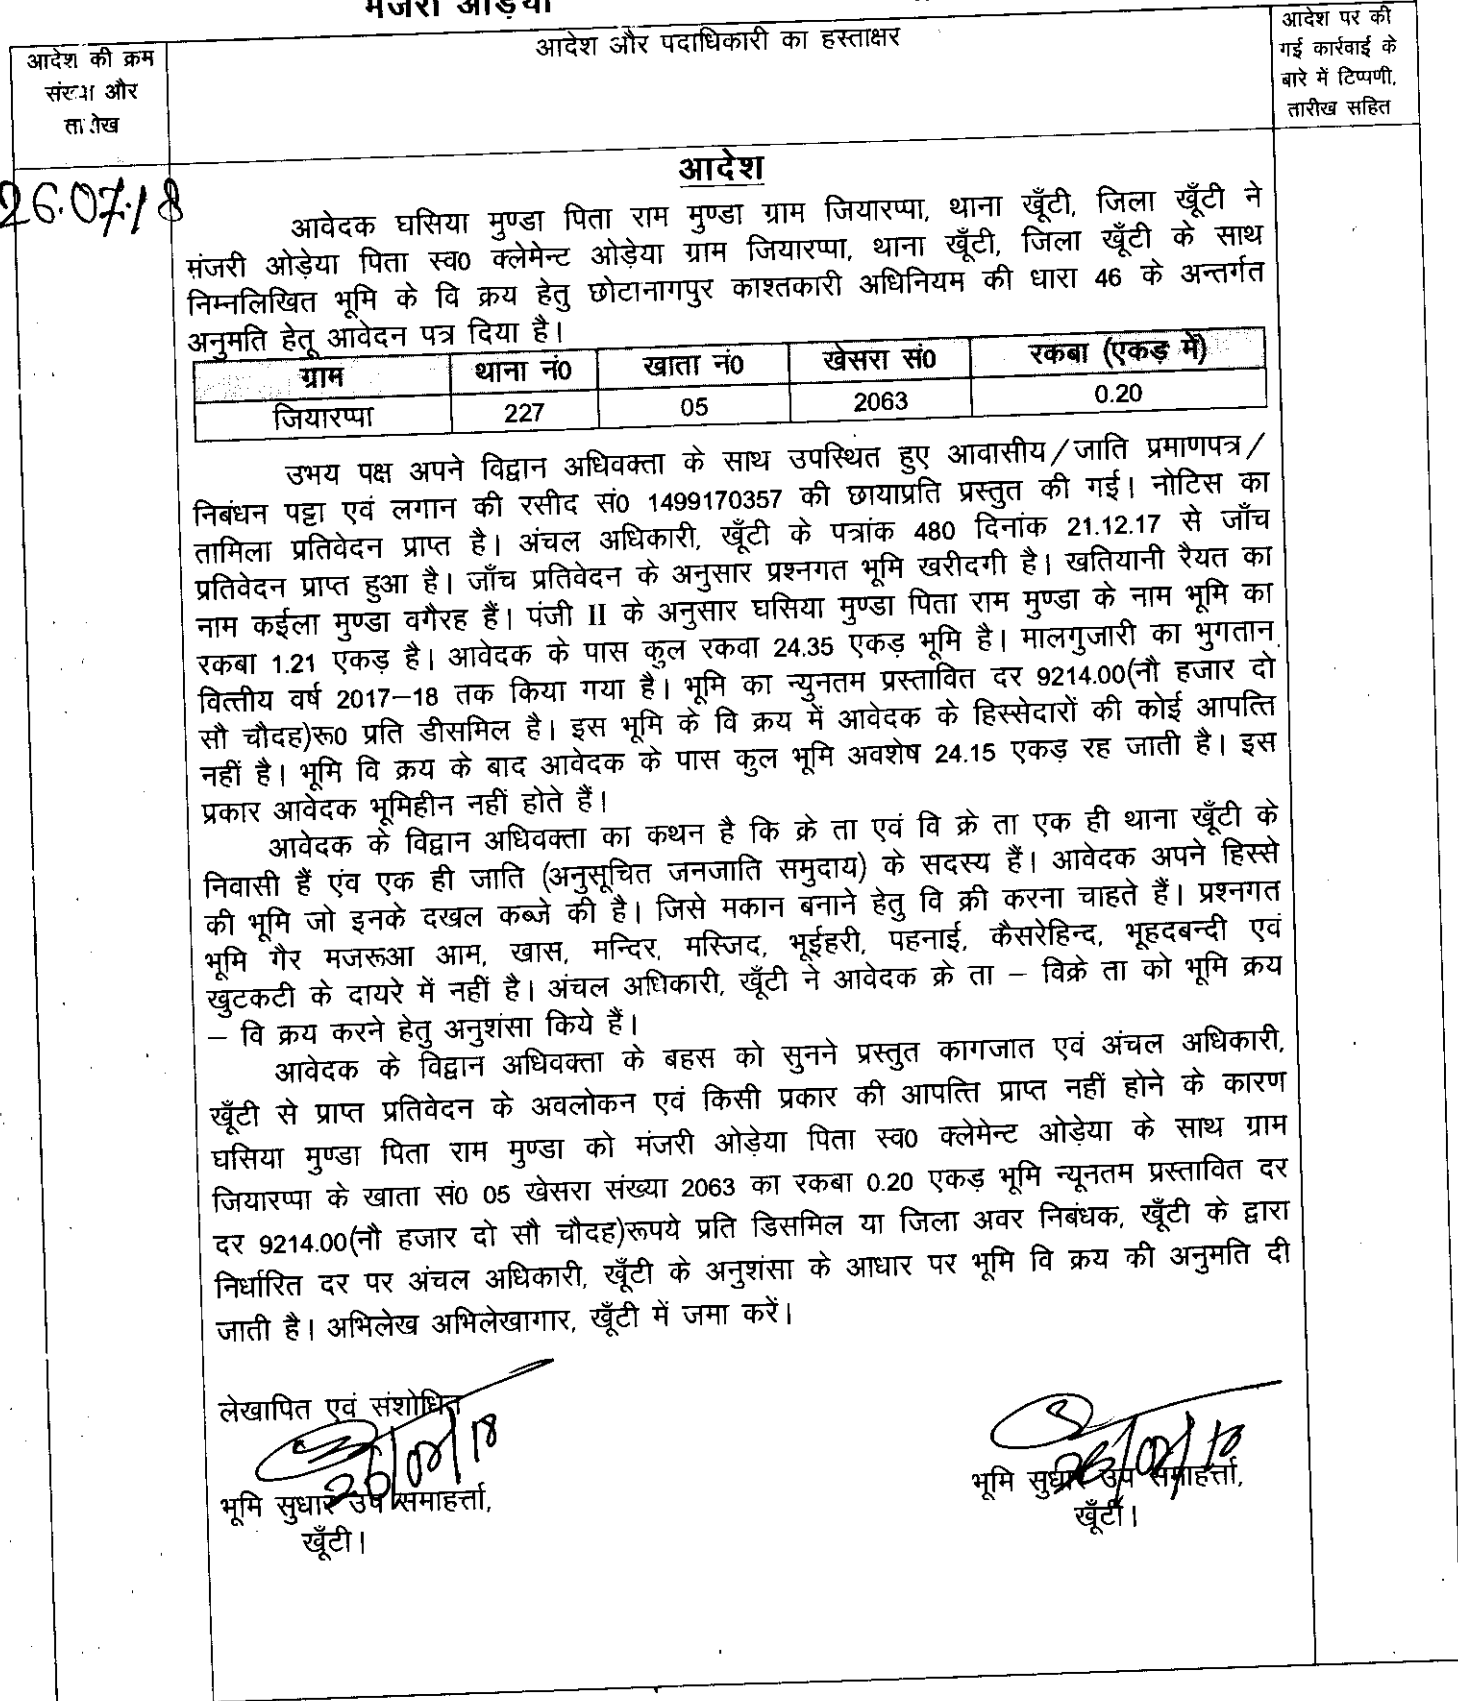 मंजरी ओड़ेया
आदेश की क्रम
संख्या और
तारीख
आदेश और पदाधिकारी का हस्ताक्षर
आदेश पर की
गई कार्रवाई के
बारे में टिप्पणी,
तारीख सहित
26.07.18
आदेश
आवेदक घसिया मुण्डा पिता राम मुण्डा ग्राम जियारप्पा, थाना खूँटी, जिला खूँटी ने
मंजरी ओड़ेया पिता स्व0 क्लेमेन्ट ओड़ेया ग्राम जियारप्पा, थाना खूँटी, जिला खूँटी के साथ
निम्नलिखित भूमि के वि क्रय हेतु छोटानागपुर काश्तकारी अधिनियम की धारा 46 के अन्तर्गत
अनुमति हेतू आवेदन पत्र दिया है।
ग्राम थाना नं0 खाता नं0 खेसरा सं0 रकबा (एकड़ में)
जियारप्पा 227 05 2063 0.20
उभय पक्ष अपने विद्वान अधिवक्ता के साथ उपस्थित हुए आवासीय/जाति प्रमाणपत्र/
निबंधन पट्टा एवं लगान की रसीद सं0 1499170357 की छायाप्रति प्रस्तुत की गई। नोटिस का
तामिला प्रतिवेदन प्राप्त है। अंचल अधिकारी, खूँटी के पत्रांक 480 दिनांक 21.12.17 से जाँच
प्रतिवेदन प्राप्त हुआ है। जाँच प्रतिवेदन के अनुसार प्रश्नगत भूमि खरीदगी है। खतियानी रैयत का
नाम कईला मुण्डा वगैरह हैं। पंजी II के अनुसार घसिया मुण्डा पिता राम मुण्डा के नाम भूमि का
रकबा 1.21 एकड़ है। आवेदक के पास कुल रकवा 24.35 एकड़ भूमि है। मालगुजारी का भुगतान
वित्तीय वर्ष 2017–18 तक किया गया है। भूमि का न्युनतम प्रस्तावित दर 9214.00(नौ हजार दो
सौ चौदह)रू0 प्रति डीसमिल है। इस भूमि के वि क्रय में आवेदक के हिस्सेदारों की कोई आपत्ति
नहीं है। भूमि वि क्रय के बाद आवेदक के पास कुल भूमि अवशेष 24.15 एकड़ रह जाती है। इस
प्रकार आवेदक भूमिहीन नहीं होते हैं।
आवेदक के विद्वान अधिवक्ता का कथन है कि क्रे ता एवं वि क्रे ता एक ही थाना खूँटी के
निवासी हैं एंव एक ही जाति (अनुसूचित जनजाति समुदाय) के सदस्य हैं। आवेदक अपने हिस्से
की भूमि जो इनके दखल कब्जे की है। जिसे मकान बनाने हेतु वि क्री करना चाहते हैं। प्रश्नगत
भूमि गैर मजरूआ आम, खास, मन्दिर, मस्जिद, भूईहरी, पहनाई, कैसरेहिन्द, भूहदबन्दी एवं
खुटकटी के दायरे में नहीं है। अंचल अधिकारी, खूँटी ने आवेदक क्रे ता – विक्रे ता को भूमि क्रय
– वि क्रय करने हेतु अनुशंसा किये हैं।
आवेदक के विद्वान अधिवक्ता के बहस को सुनने प्रस्तुत कागजात एवं अंचल अधिकारी,
खूँटी से प्राप्त प्रतिवेदन के अवलोकन एवं किसी प्रकार की आपत्ति प्राप्त नहीं होने के कारण
घसिया मुण्डा पिता राम मुण्डा को मंजरी ओड़ेया पिता स्व0 क्लेमेन्ट ओड़ेया के साथ ग्राम
जियारप्पा के खाता सं0 05 खेसरा संख्या 2063 का रकबा 0.20 एकड़ भूमि न्यूनतम प्रस्तावित दर
दर 9214.00(नौ हजार दो सौ चौदह)रूपये प्रति डिसमिल या जिला अवर निबंधक, खूँटी के द्वारा
निर्धारित दर पर अंचल अधिकारी, खूँटी के अनुशंसा के आधार पर भूमि वि क्रय की अनुमति दी
जाती है। अभिलेख अभिलेखागार, खूँटी में जमा करें।
लेखापित एवं संशोधित
26/07/18
26/07/18
भूमि सुधार उप समाहर्त्ता,
खूँटी।
भूमि सुधार उप समाहर्त्ता,
खूँटी।